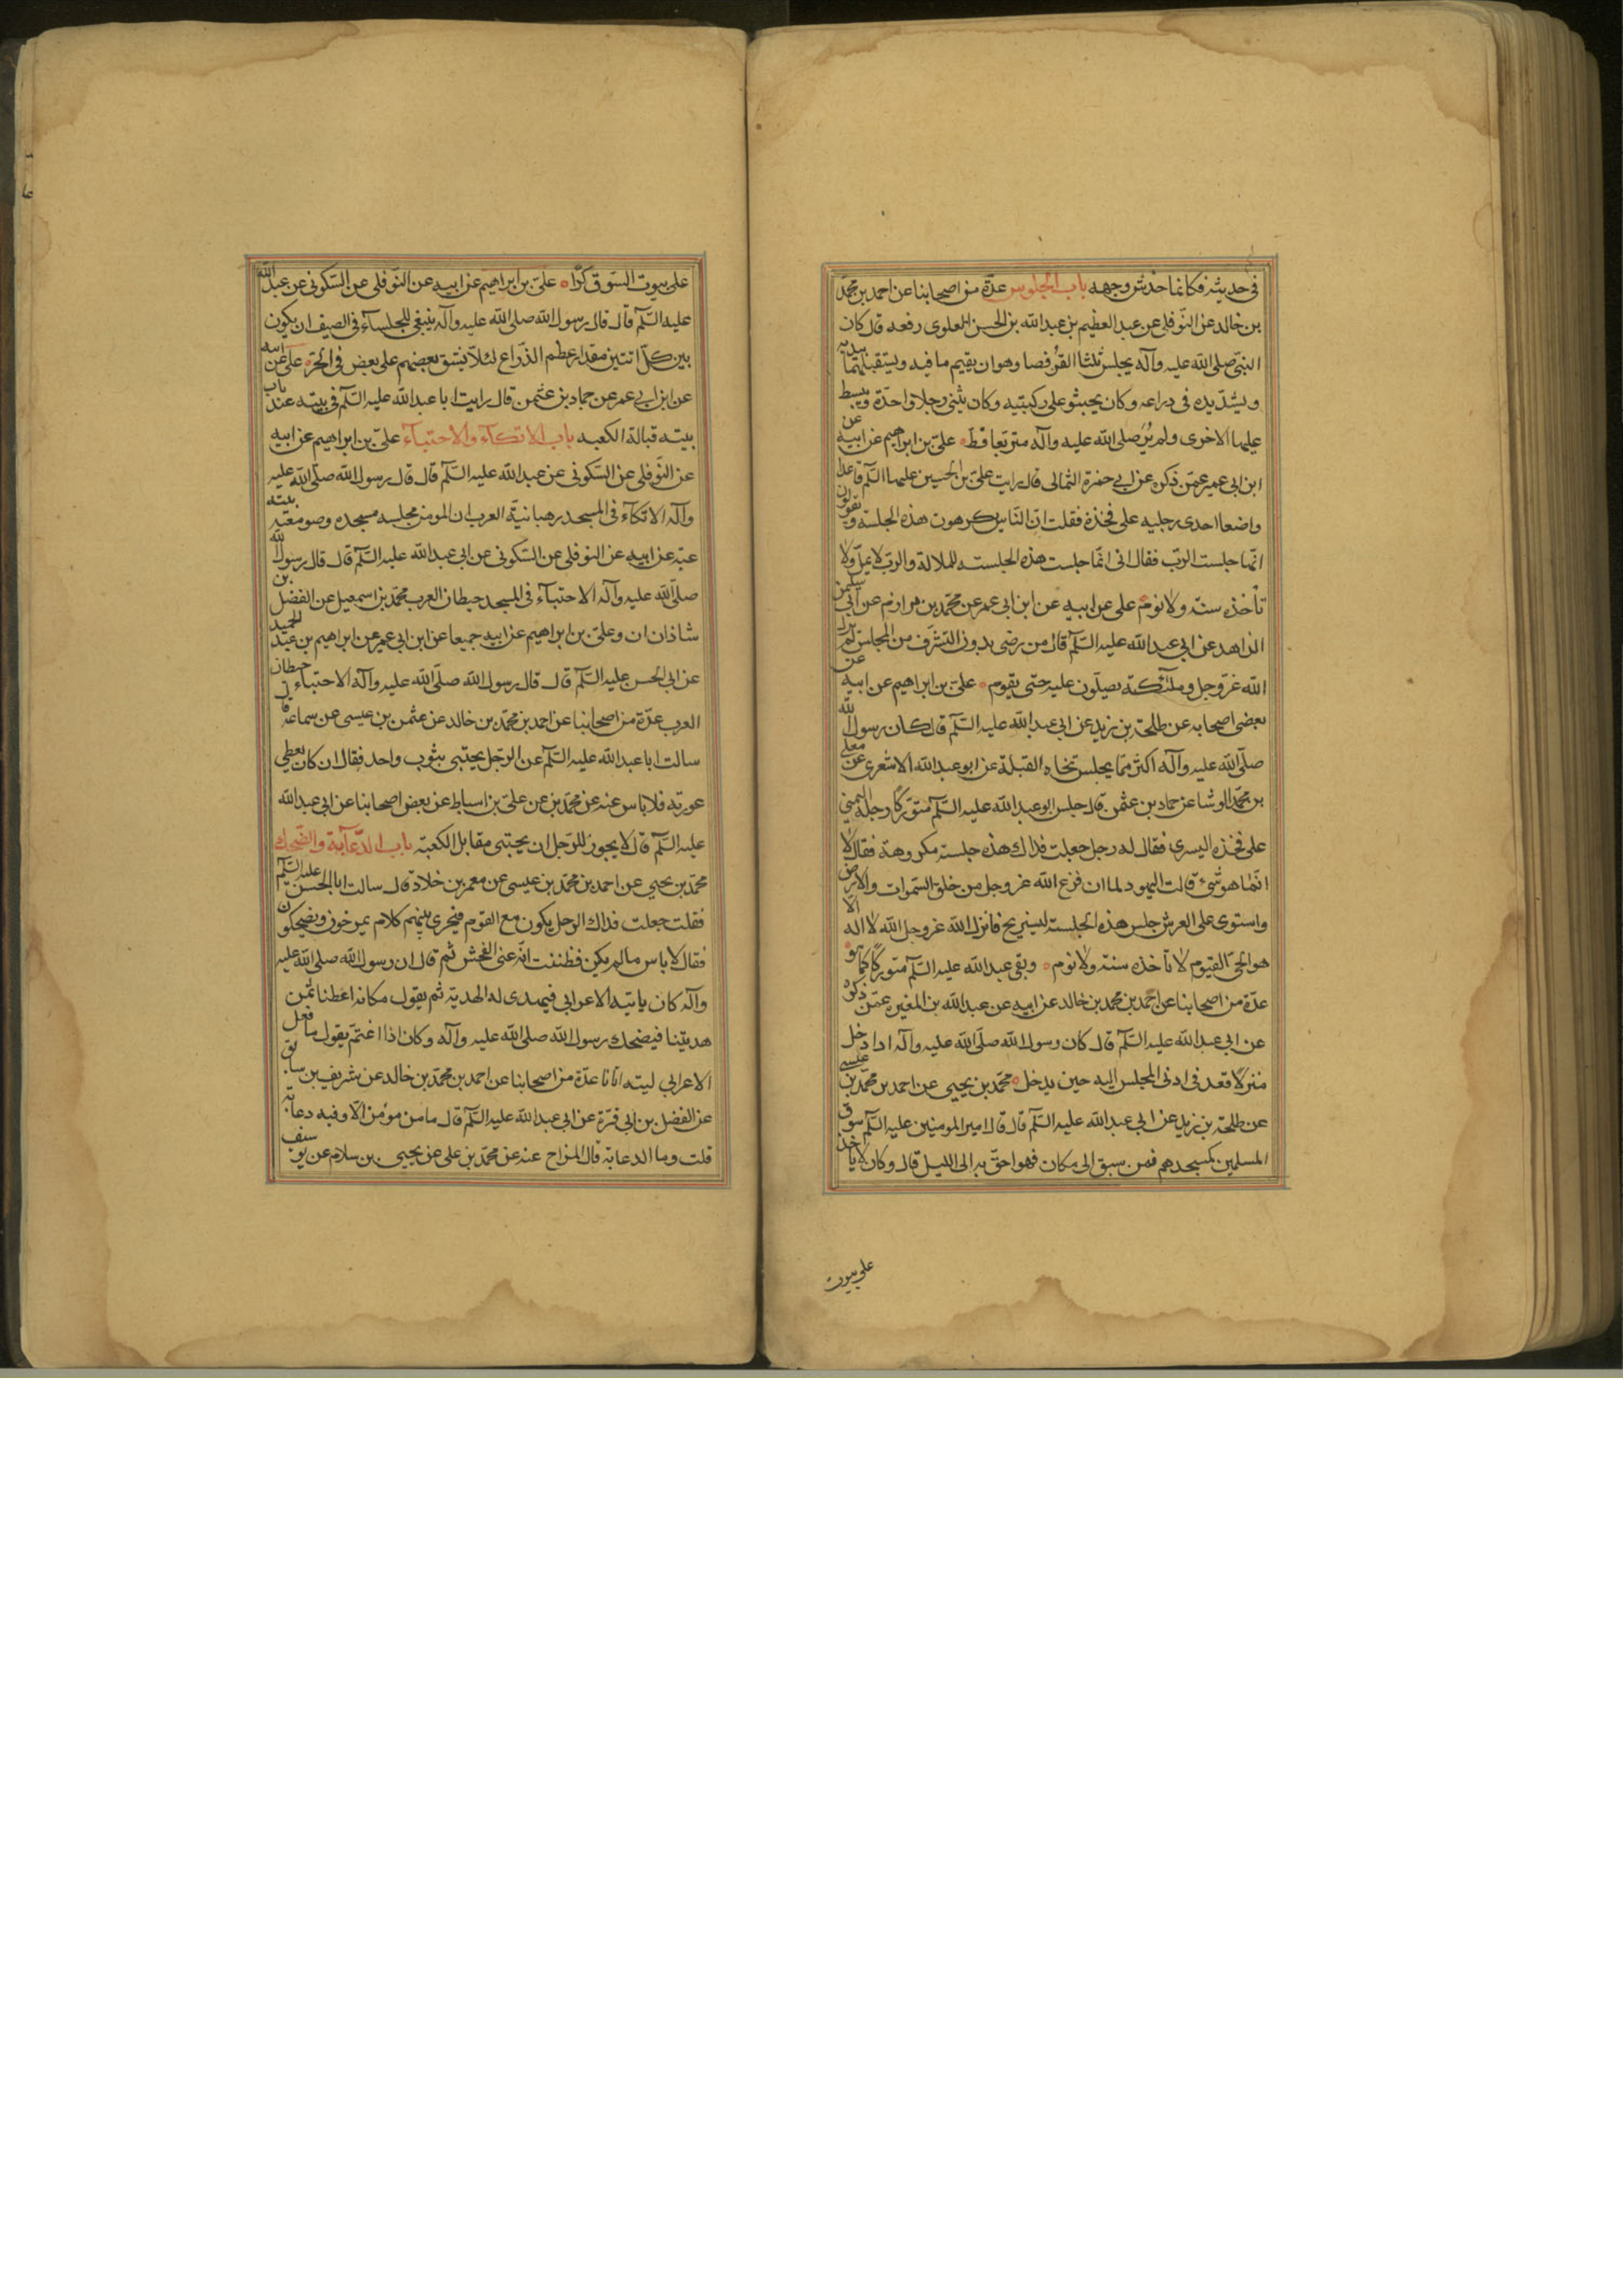 في حديثه فكانما خدش وجهه باب الجلوس عدّة من اصحابنا عن احمد بن محمّد
بن خالد عن النّوفلي عن عبد العظيم بن عبد الله بن الحسن العلوي رفعه قال كان
النبيّ صلى الله عليه وآله يجلس ثلثا القرفصا وهو ان يقيم ما فيه ويستقبلهما بيديه
ويشدّ يده في دراعه وكان يجثو على ركبتيه وكان يثني رجلا واحدة ويبسط
عليها الاخرى ولم يُرَ صلى الله عليه وآله متربعا قط علىّ بن ابراهيم عن ابيه عن
ابن ابى عمير عمّن ذكره عن ابي حمزة الثمالى قال رايت علىّ بن الحسين عليهما السّلم قاعدا
واضعا احدى رجليه على فخذة فقلت انّ النّاس يكرهون هذه الجلسة ويقولون
انّها جلست الربّ فقال انى انّما جلست هذه الجلسته للملالة والربّ لا يملّ ولا
تأخذه سنة ولا نوم على عن ابيه عن ابن ابى عمير عن محمّد بن مرازم عن أبي سليمن
الزاهد عن ابي عبد الله عليه السّلم قال من رضى بدون التشرّف من المجلس لم يزل
الله عزّ وجل وملئكته يصلّون عليه حتى يقوم علىّ بن ابراهيم عن ابيه عن
بعض اصحابه عن طلحة بن زيد عن ابى عبد الله عليه السّلم قال كان رسول الله
صلّى الله عليه وآله اكثر مما يجلس تجاه القبلة عن ابو عبد الله الاشعرى عن معلى
بن محمّد الوشا عن حماد بن عثمن قال جلس ابو عبد الله عليه السّلم متورّكا رجله اليمنى
على فخذه اليسرى فقال له رجل جعلت فداك هذه جلسته مكروهة فقال لا
انّما هو شيء قالت اليهود لما ان فرغ الله عزوجل من خلق السّموات والارض
واستوى على العرش جلس هذه الجلسته ليستريح فانزل الله عزوجل الله لا اله الّا
هو الحىّ القيوم لا تأخذه سنة ولا نوم وبقى عبد الله عليه السّلم متورّكا كما هو
عدّة من اصحابنا عن احمد بن محمد بن خالد عن ابيه عن عبد الله بن المغيره عمّن ذكره
عن ابي عبد الله عليه السّلم قال كان رسول الله صلّى الله عليه وآله اذا دخل
منزلا قعد في ادنى المجلس اليه حين يدخل محمّد بن يحيى عن احمد بن محمّد بن عيسى
عن طلحة بن زيد عن ابي عبد الله عليه السّلم قال قال امير المومنين عليه السّلم سوق
المسلمين كمسجدهم فمن سبق الى مكان فهو احقّ به الى الليل قال وكان لا ياخذ
على بيوت
على بيوت السّوق كرّا علىّ بن ابراهيم عن ابيه عن النّوفلى عن السّكونى عن عبد الله
عليه السّلم قال قال رسول الله صلى الله عليه وآله ينبغي للجلساء في الصيف ان يكون
بين كلّ اثنين مقدار عظم الذّراع لئلّا يشق بعضهم على بعض في الحرّ على عن ابيه
عن ابن ابى عمير عن حماد بن عثمن قال رايت ابا عبد الله عليه السّلم في بيته عند باب
بيته قبالة الكعبه باب الاتكاء والاحتباء علىّ بن ابراهيم عن ابيه
عن النّوفلى عن السّكونى عن عبد الله عليه السّلم قال قال رسول الله صلّى الله عليه
وآله الاتكاء في المسجد رهبانيّة العرب ان المومن مجلسه مسجده وصومعته بيته
عنه عن ابيه عن النوفلى عن السّكونى عن ابى عبد الله عليه السّلم قال قال رسول الله
صلّى الله عليه وآله الاحتباء في المسجد حيطان العرب محمّد بن اسمعيل عن الفضل بن
شاذان ان وعلىّ بن ابراهيم عن ابيه جميعا عن ابن ابى عمير عن ابراهيم بن عبد الحميد
عن ابي الحسن عليه السّلم قال قال رسول الله صلّى الله عليه وآله الاحتباء حيطان
العرب عدّة من اصحابنا عن احمد بن محمّد بن خالد عن عثمن بن عيسى عن سماعة قال
سالت ابا عبد الله عليه السّلم عن الرّجل يحتبى بثوب واحد فقال ان كان يغطى
عورته فلا باس عنه عن محمّد بن عن علىّ بن اسباط عن بعض اصحابنا عن ابي عبد الله
عليه السّلم قال لا يجوز للرّجل ان يحتبى مقابل الكعبة باب الدّعابة والضّحك
محمّد بن يحيي عن احمد بن محمّد بن عيسى عن معمر بن خلاد قال سالت ابا الحسن عليه السّلم
فقلت جعلت فداك الرجل يكون مع القوم فيجرى بينهم كلام يمزحون ويضحكون
فقال لا باس ما لم يكن فظننت انّه عنى الفحش ثم قال ان رسول الله صلى الله عليه
وآله كان ياتيه الاعرابي فيهدى له الهدية ثم يقول مكانه اعطنا ثمن
هديتنا فيضحك رسول الله صلى الله عليه وآله وكان اذا اغتمّ يقول ما فعل
الاعرابي ليته اتانا عدّة من اصحابنا عن احمد بن محمّد بن خالد عن شريف بن سابق
عن الفضل بن ابى قرّة عن ابي عبد الله عليه السّلم قال ما من مؤمن الّا وفيه دعابة
قلت وما الدعابة قال المزاح عنه عن محمّد بن على عن يحيى بن سلام عن يوسف